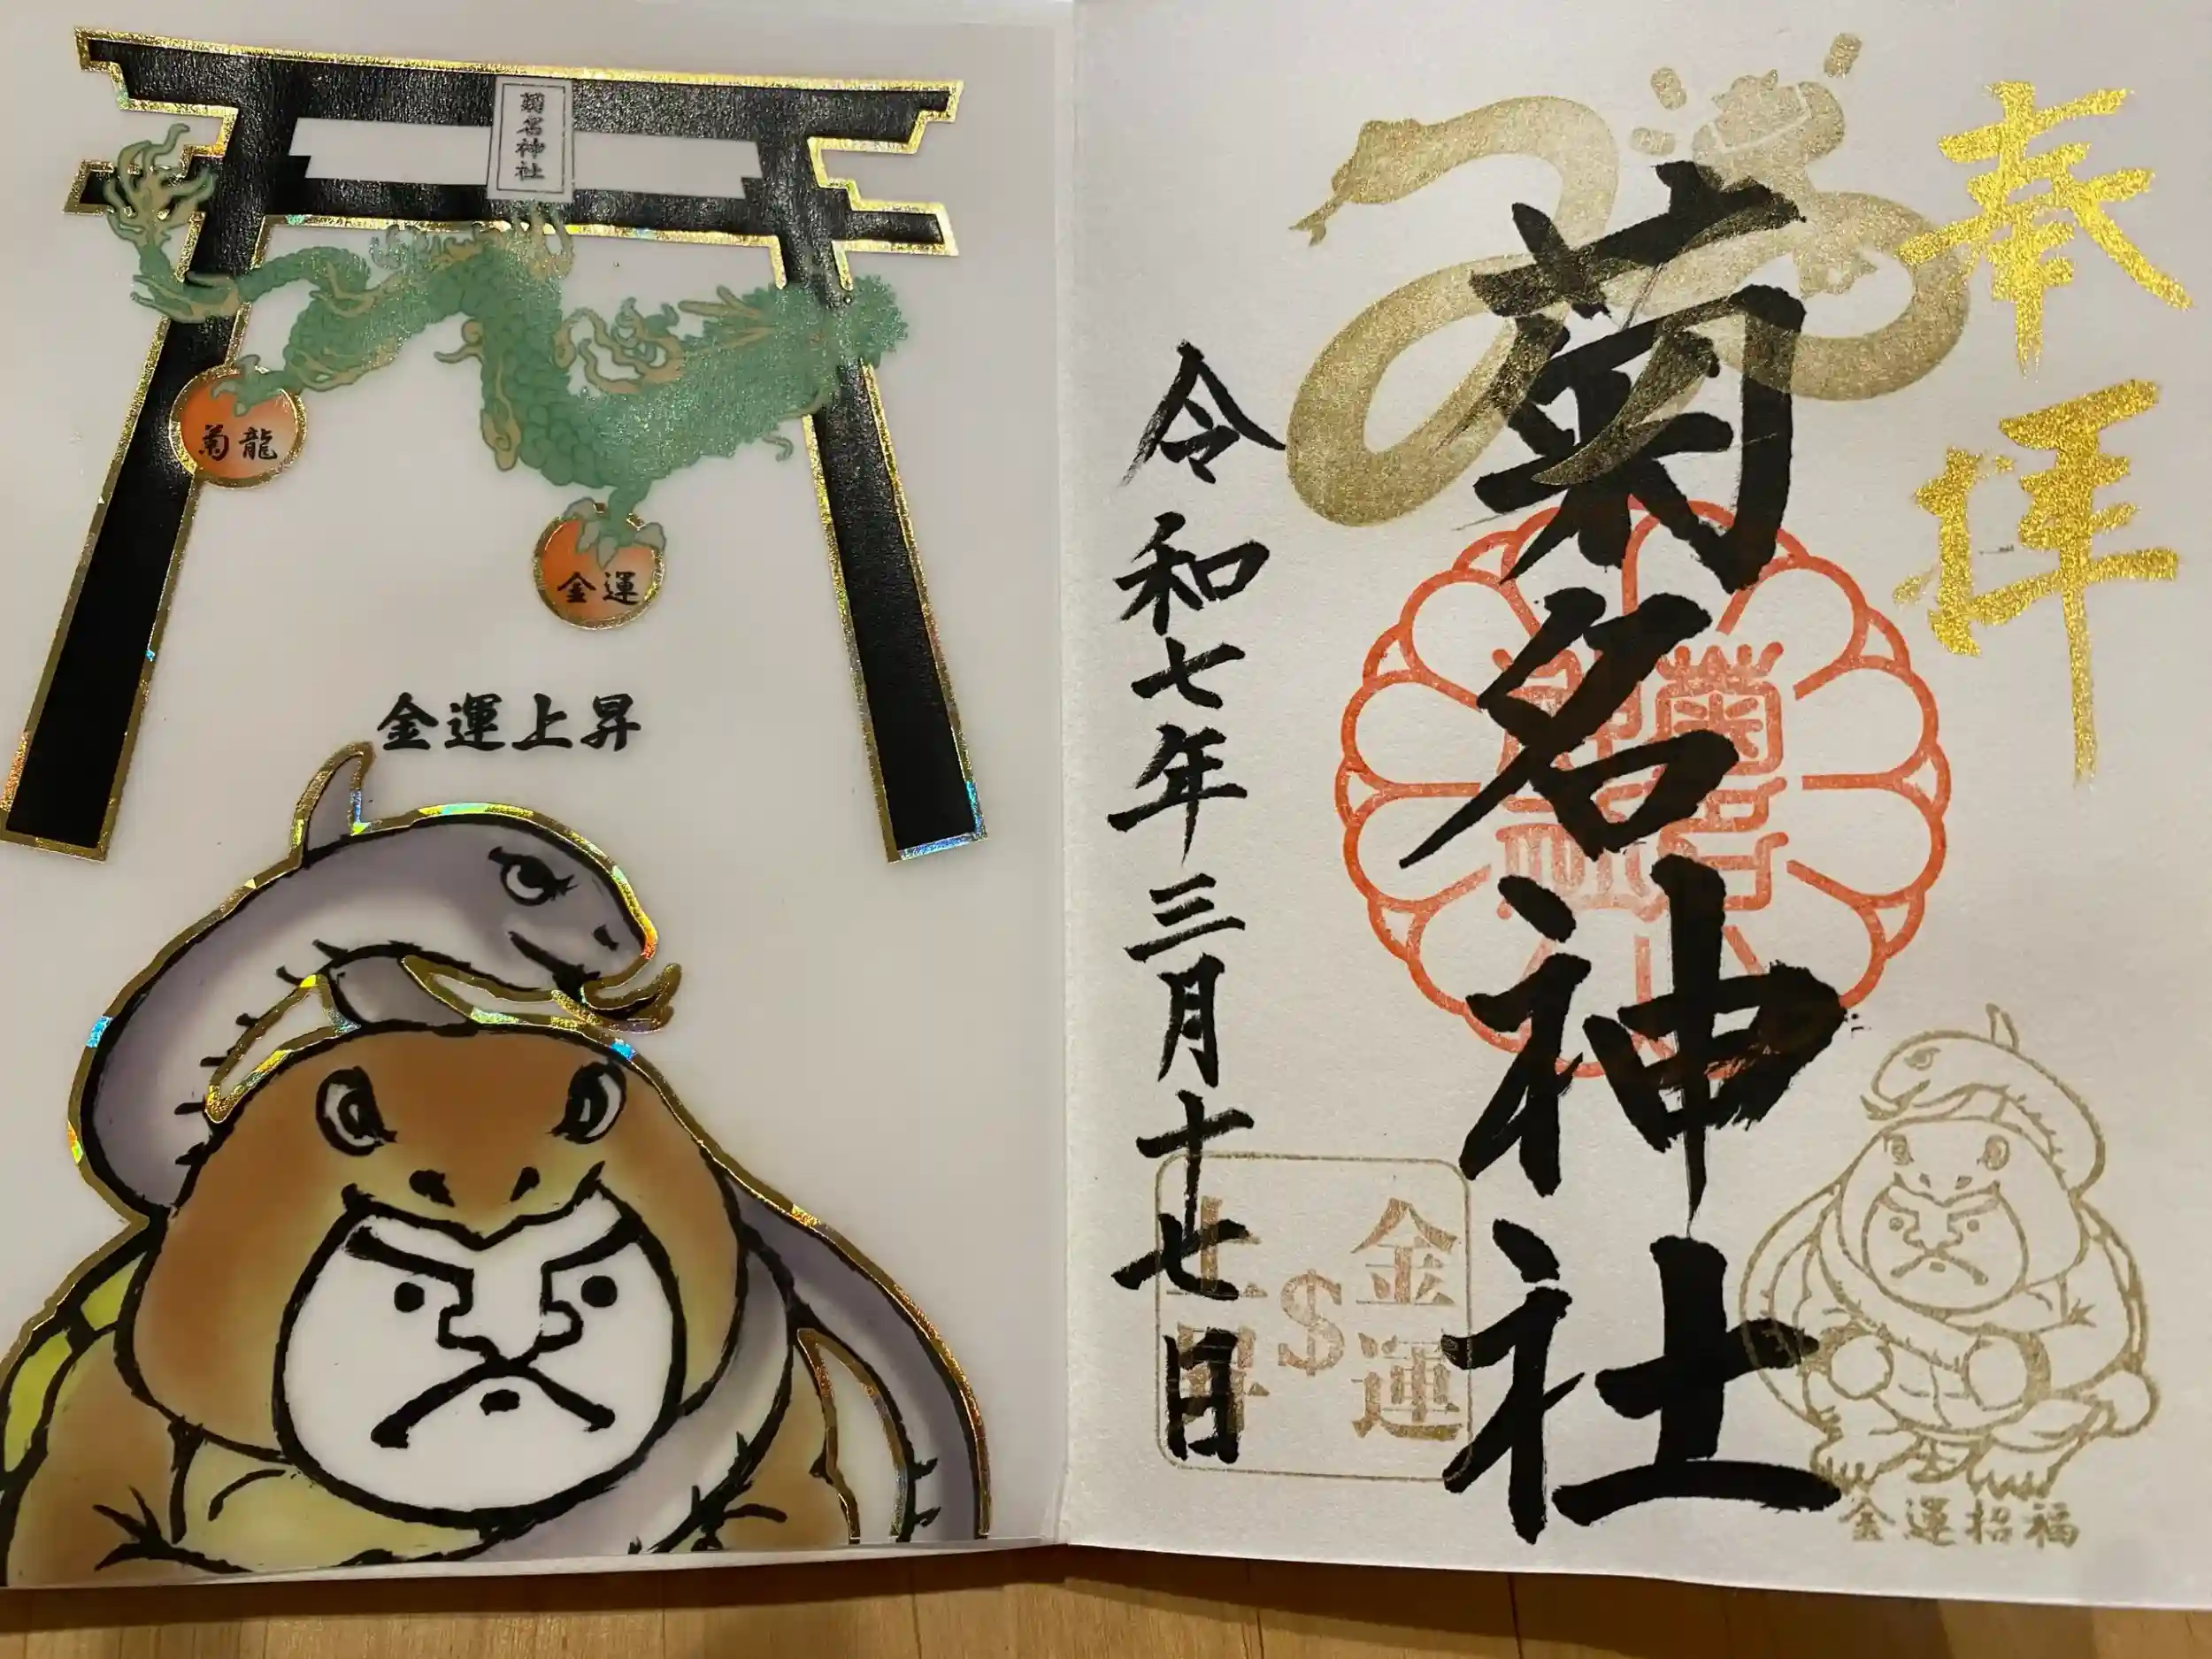 菊名神社
菊龍
金運
金運上昇
奉拝
菊名神社
菊名
神社
令和七年三月十七日
金運
$
上昇
金運招福